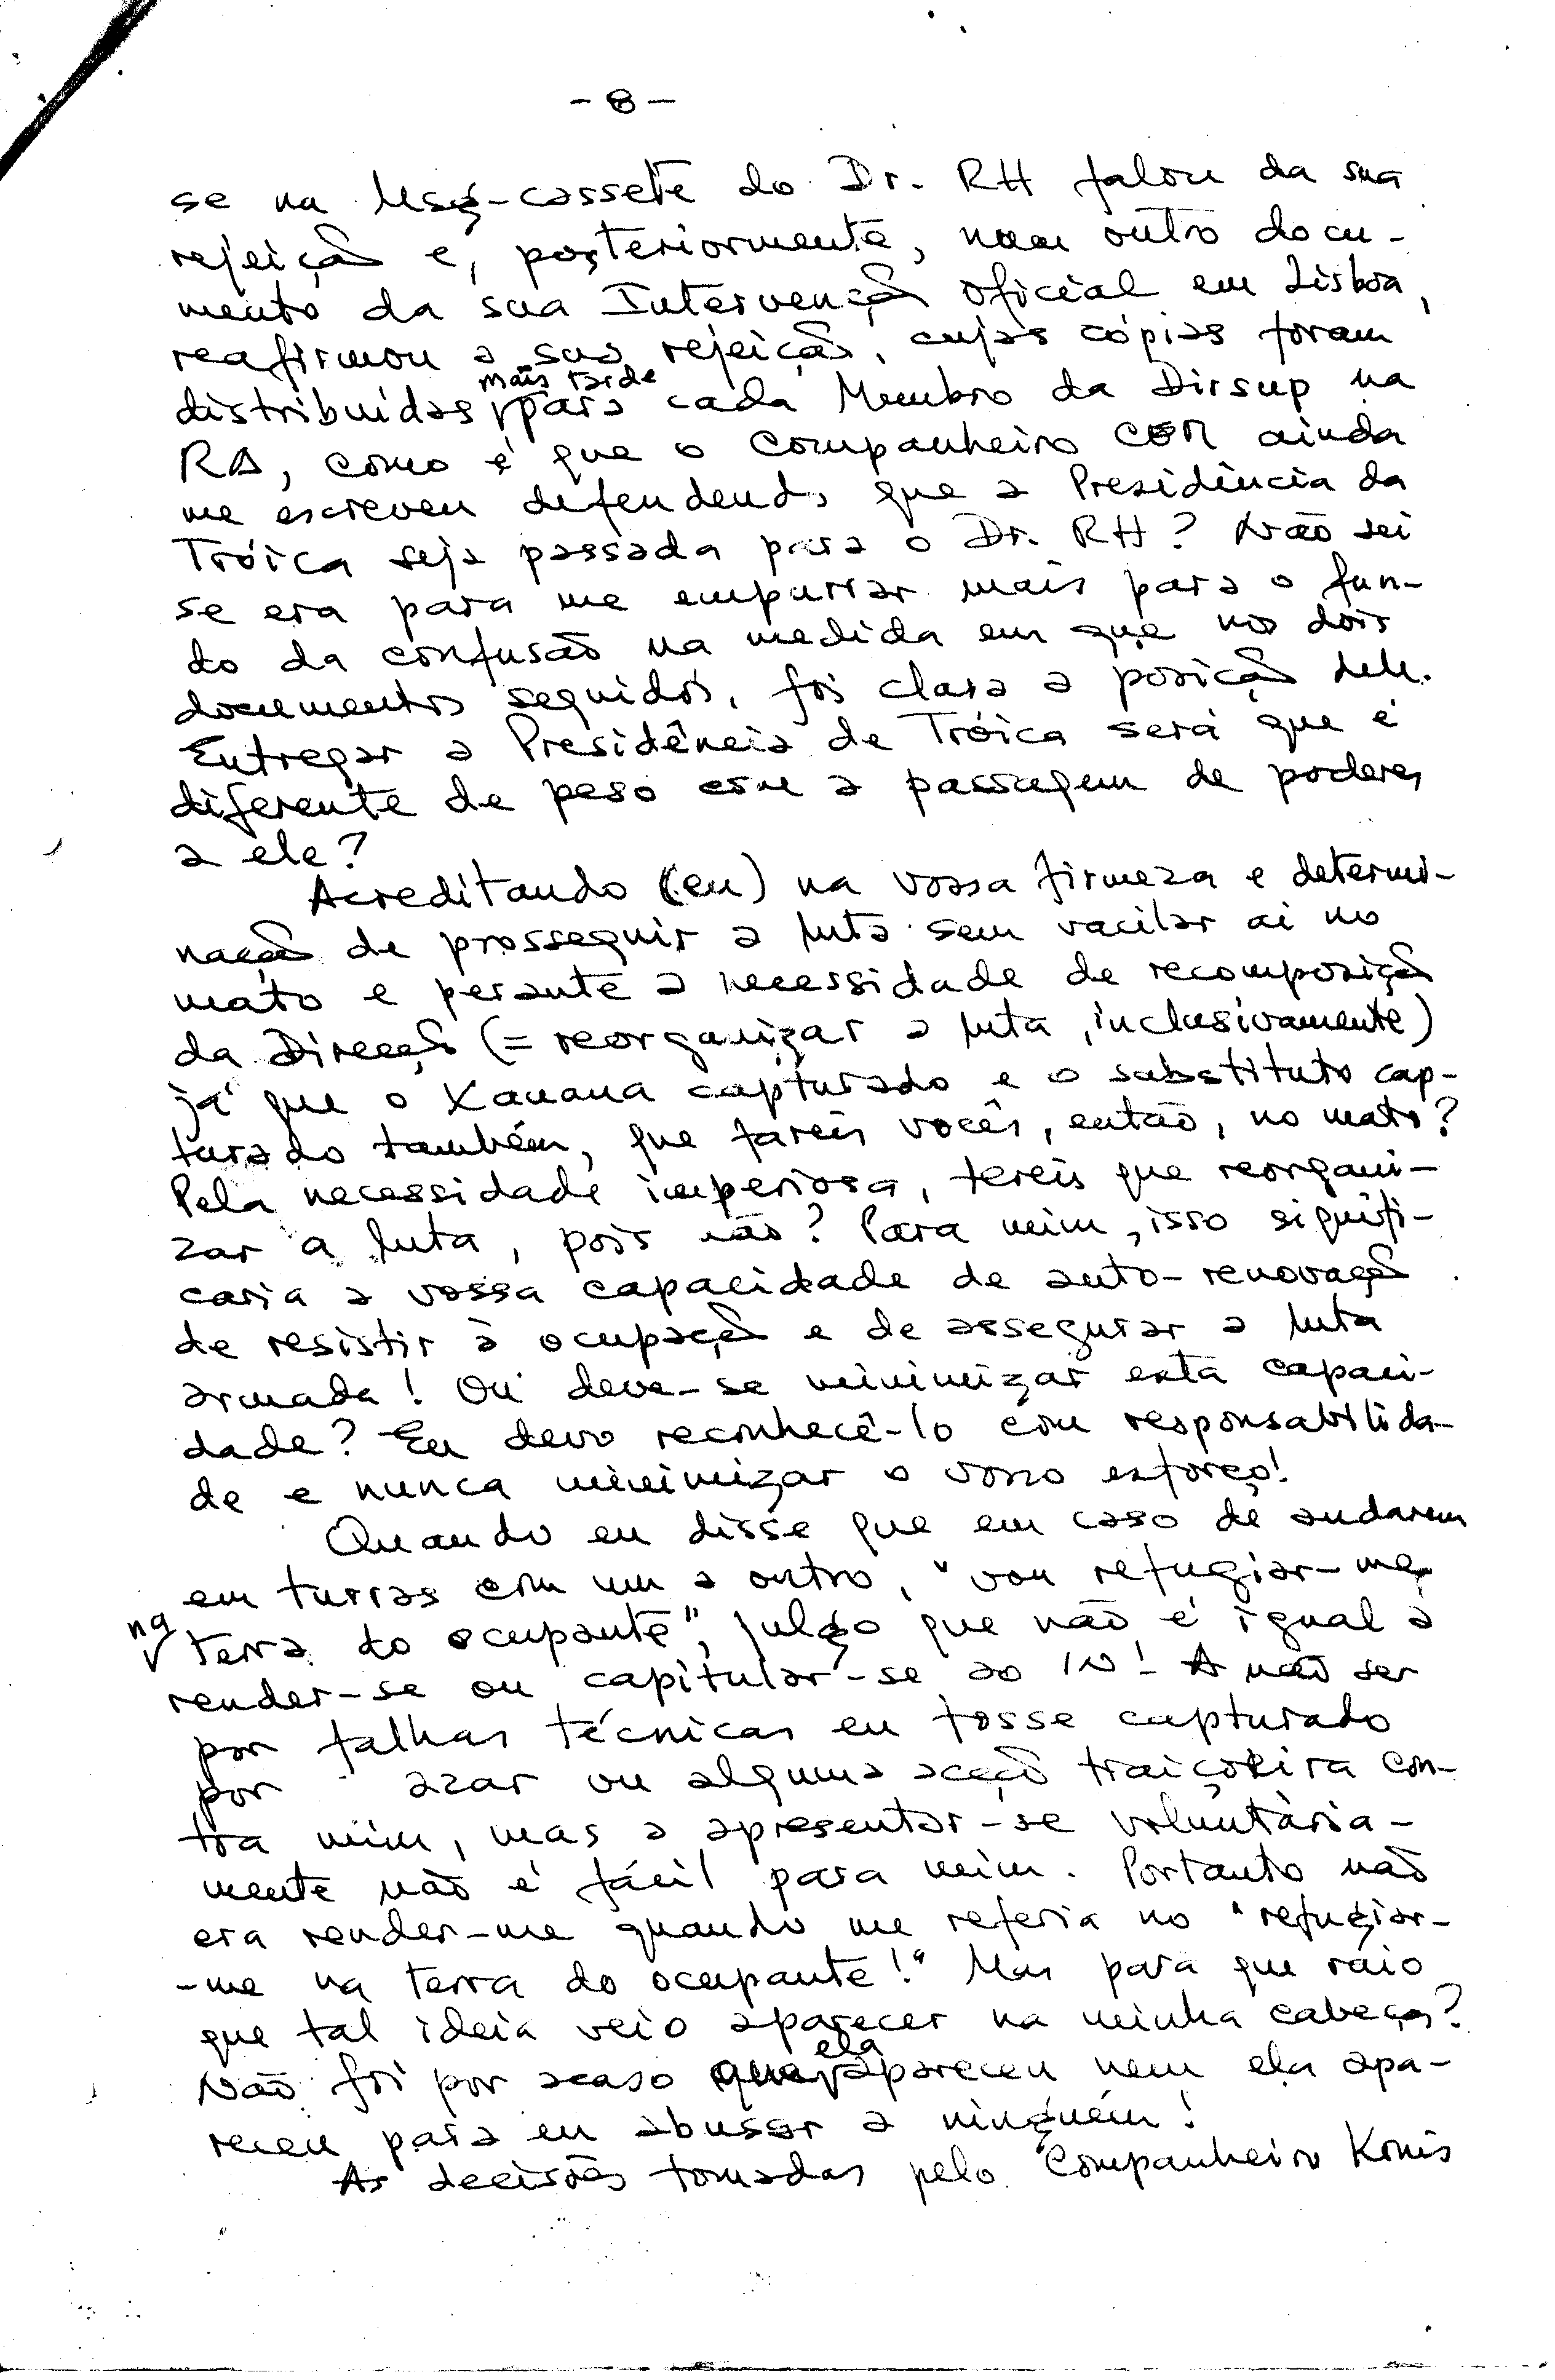 - 8 -
se na Msg-cassete do Dr. RH falou da sua
rejeição e, posteriormente, num outro docu-
mento da sua Intervenção Oficial em Lisboa,
reafirmou a sua rejeição, cujas cópias foram
mais tarde
distribuídas para cada Membro da Dirsup na
RA, como é que o Companheiro ainda
me escreveu defendendo que a Presidência da
Tróica seja passada para o Dr. RH? Não sei
se era para me empurrar mais para o fun-
do da confusão na medida em que nos dois
documentos seguidos, foi clara a posição dele.
Entregar a Presidência de Tróica será que é
diferente de peso com a passagem de poderes
a ele?
Acreditando (eu) na vossa firmeza e determi-
nação de prosseguir a luta sem vacilar aí no
mato e perante a necessidade de recomposição
da Direcção (= reorganizar a luta, inclusivamente)
já que o Xanana capturado e o substituto cap-
turado também, que fareis vocês, então, no mato?
Pela necessidade imperiosa, tereis que reorgani-
zar a luta, pois não? Para mim, isso signifi-
caria a vossa capacidade de auto-renovação
de resistir à ocupação e de assegurar a luta
armada! Ou deve-se minimizar esta capaci-
dade? Eu devo reconhecê-lo com responsabilida-
de e nunca minimizar o vosso esforço!
Quando eu disse que em caso de andarem
em turras com um a outro, "vou refugiar-me
na
terra do ocupante", julgo que não é igual a
render-se ou capitular-se ao IN! A não ser
por falhas técnicas eu fosse capturado
por azar ou alguma acção traiçoeira con-
tra mim, mas a apresentar-se voluntària-
mente não é fácil para mim. Portanto não
era render-me quando me referia no "refugiar-
-me na terra do ocupante!" Mas para que raio
que tal ideia veio aparecer na minha cabeça?
ela
Não foi por acaso que apareceu nem ela apa-
receu para eu abusar a ninguém!
As decisões tomadas pelo Companheiro Konis